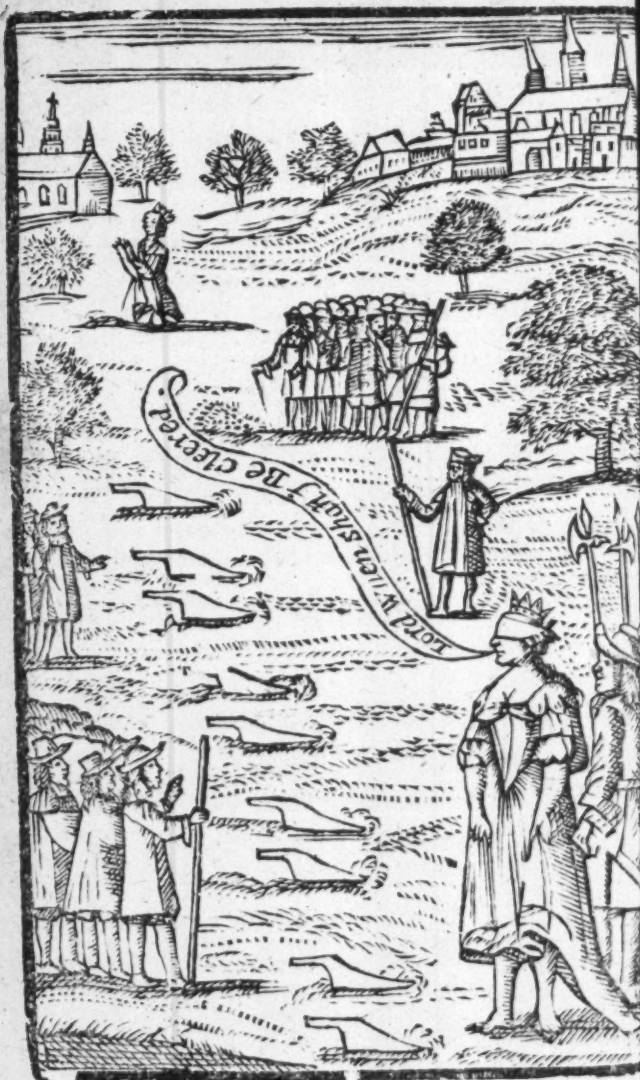 Lord when shall J Be cleered.